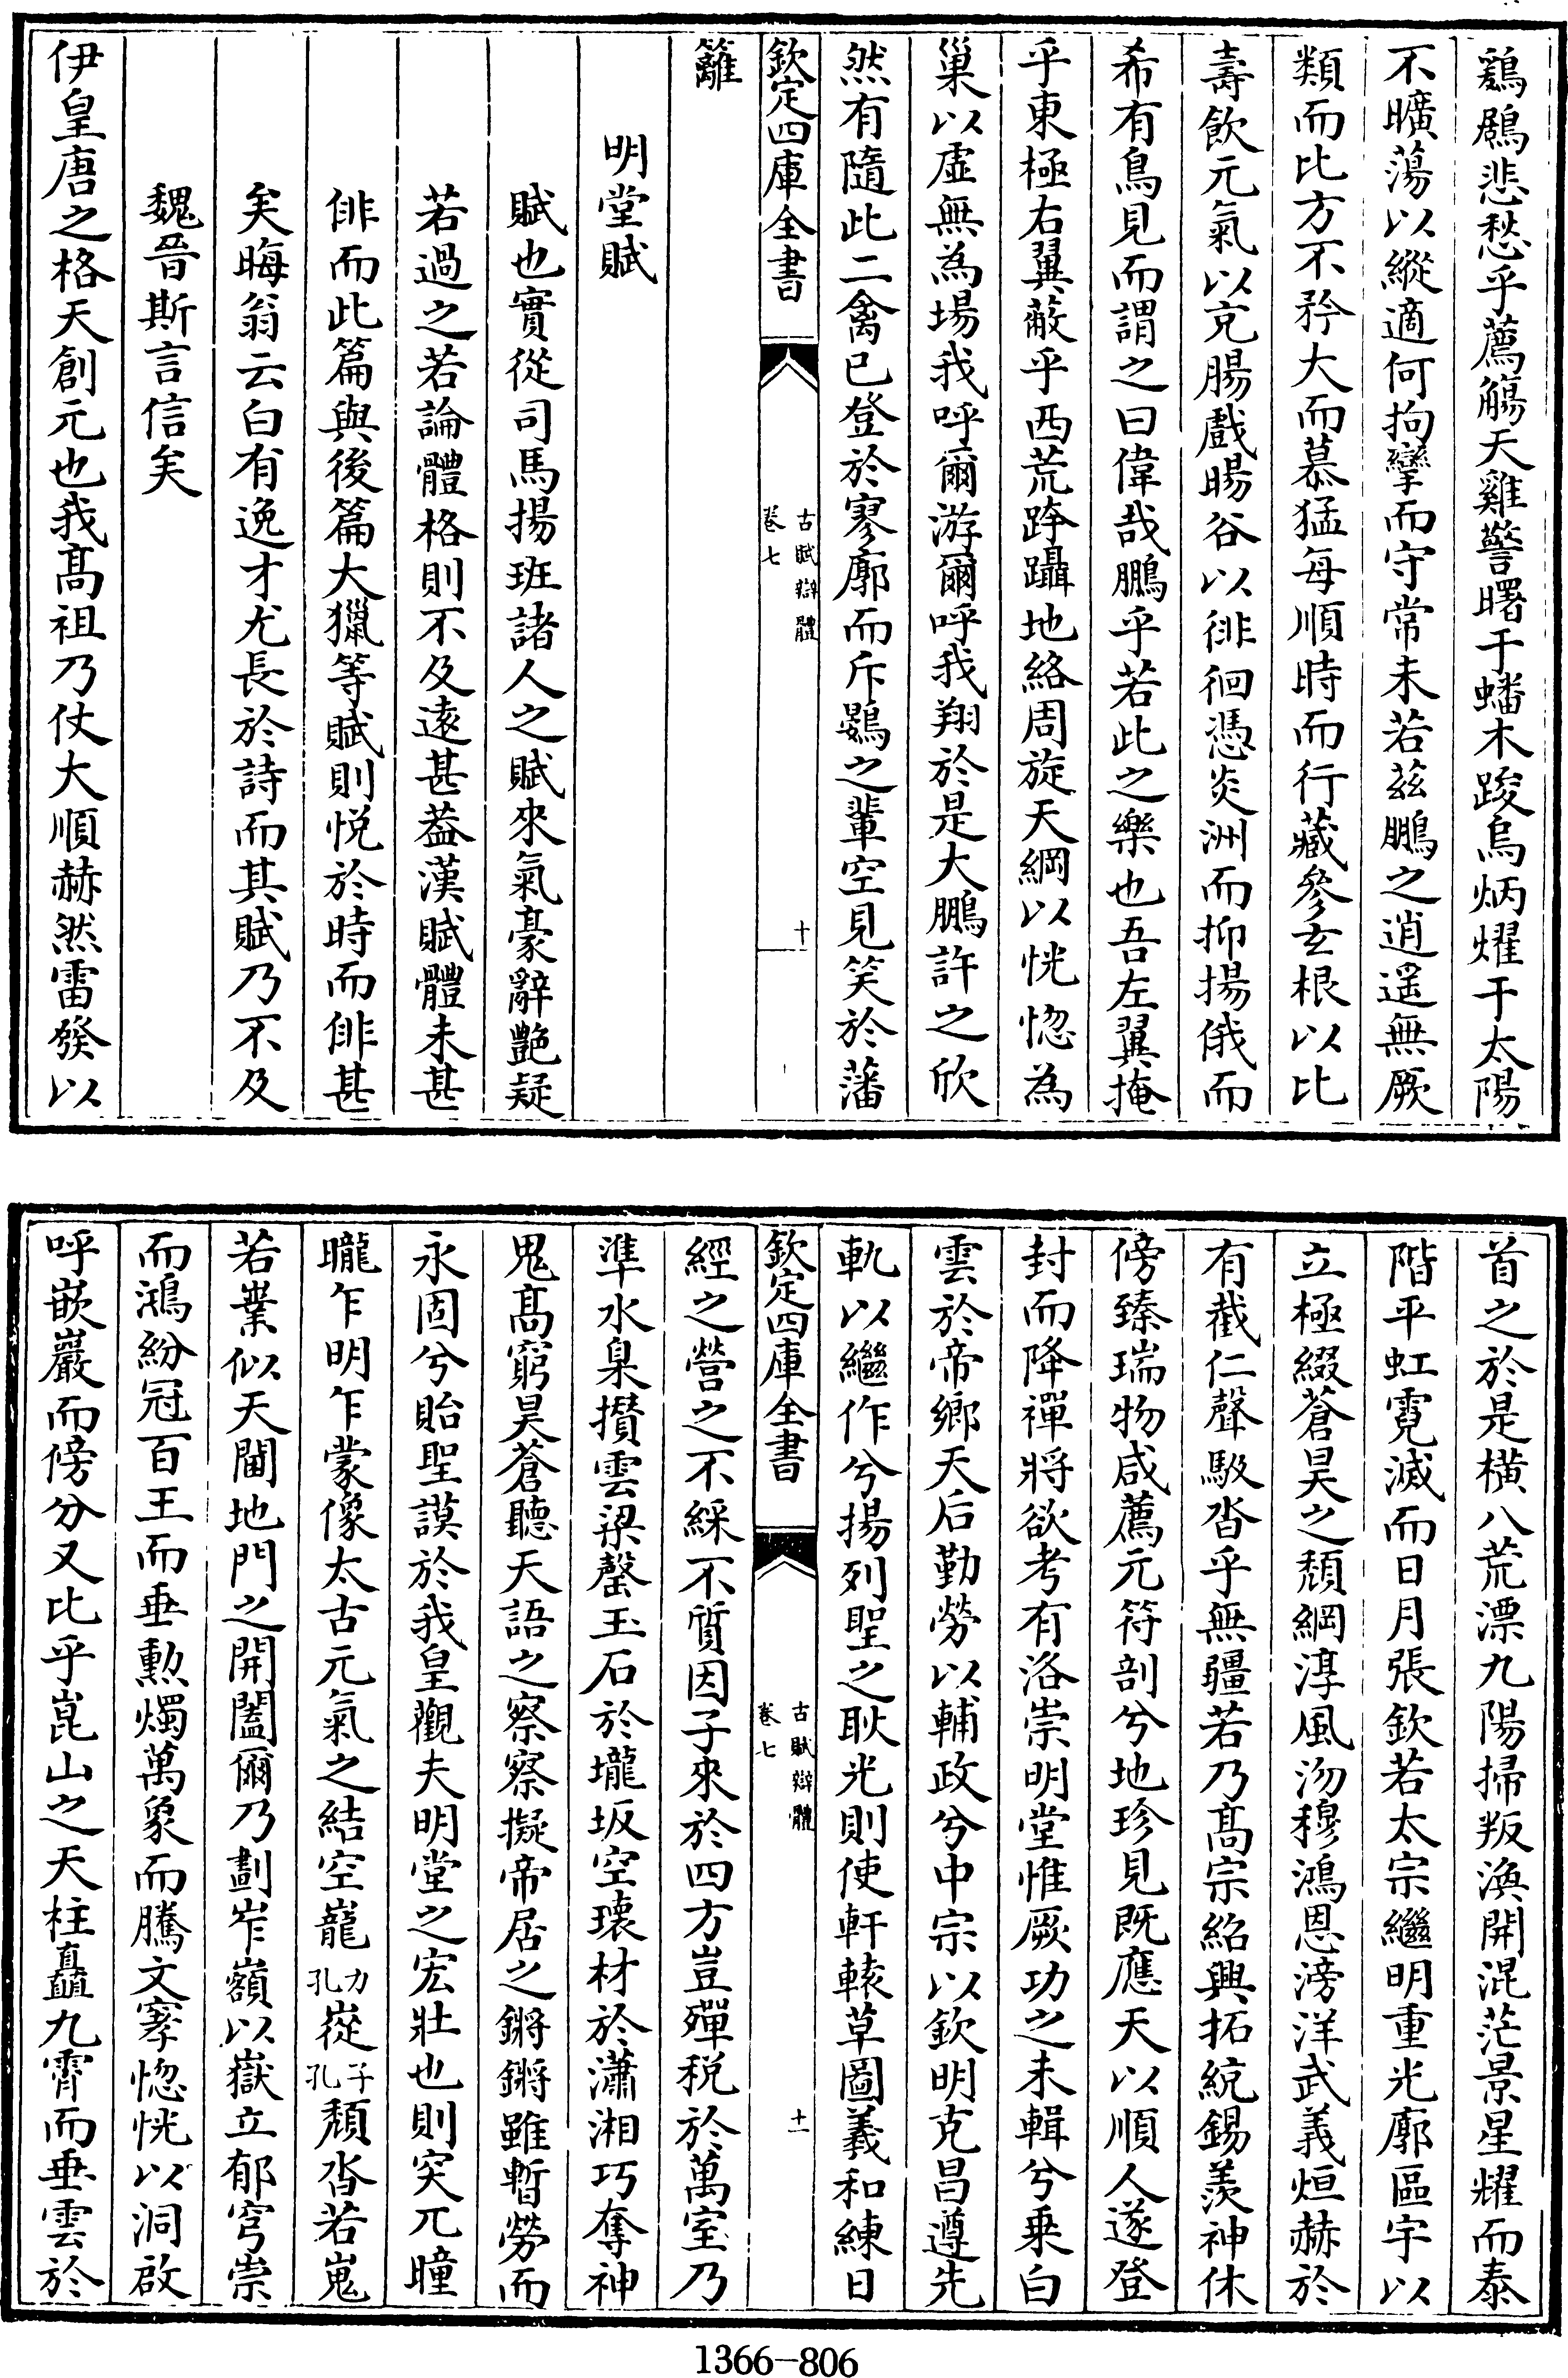 鷄鶋悲愁乎薦觴天雞警曙于蟠木踆烏炳燿于太陽
不曠蕩以縱適何拘攣而守常未若茲鵬之逍遥無厥
類而比方不矜大而慕猛每順時而行藏參玄根以比
壽飲元氣以充腸戲暘谷以徘徊憑炎洲而抑揚俄而
希有鳥見而謂之曰偉哉鵬乎若此之樂也吾左翼掩
乎東極右翼蔽乎西荒跨躡地絡周旋天綱以恍惚為
巢以虛無為場我呼爾游爾呼我翔於是大鵬許之欣
然有隨此二禽已登於寥廓而斥鷃之輩空見笑於藩
欽定四庫全書
古賦辯體
卷七
十
籬
明堂賦
賦也實從司馬揚班諸人之賦來氣豪辭艷疑
若過之若論體格則不及遠甚葢漢賦體未甚
俳而此篇與後篇大獵等賦則悅於時而俳甚
矣晦翁云白有逸才尤長於詩而其賦乃不及
魏晉斯言信矣
伊皇唐之格天創元也我髙祖乃仗大順赫然雷發以
首之於是橫八荒漂九陽掃叛渙開混茫景星耀而泰
階平虹霓滅而日月張欽若太宗繼明重光廓區宇以
立極綴蒼昊之頹綱淳風沕穆鴻恩滂洋武義烜赫於
有截仁聲馺沓乎無疆若乃髙宗紹興拓統錫羨神休
傍臻瑞物咸薦元符剖兮地珍見既應天以順人遂登
封而降禪將欲考有洛崇明堂惟厥功之未輯兮乗白
雲於帝鄉天后勤勞以輔政兮中宗以欽明克昌遵先
軌以繼作兮揚列聖之耿光則使軒轅草圖羲和練日
欽定四庫全書
古賦辯體
卷七
十一
經之營之不綵不質因子來於四方豈殫税於萬室乃
準水臬攅雲梁罄玉石於壠坂空瓌材於瀟湘巧奪神
鬼髙窮昊蒼聽天語之察察擬帝居之鏘鏘雖暫勞而
永固兮貽聖謨於我皇觀夫明堂之宏壯也則突兀曈
曨乍明乍蒙像太古元氣之結空巃力孔嵸子孔頹沓若嵬
若嶪似天閫地門之開闔爾乃劃岝嶺以嶽立郁穹崇
而鴻紛冠百王而垂勲燭萬象而騰文窙惚恍以洞啟
呼嵌巖而傍分又比乎崑山之天柱矗九霄而垂雲於
1366-806